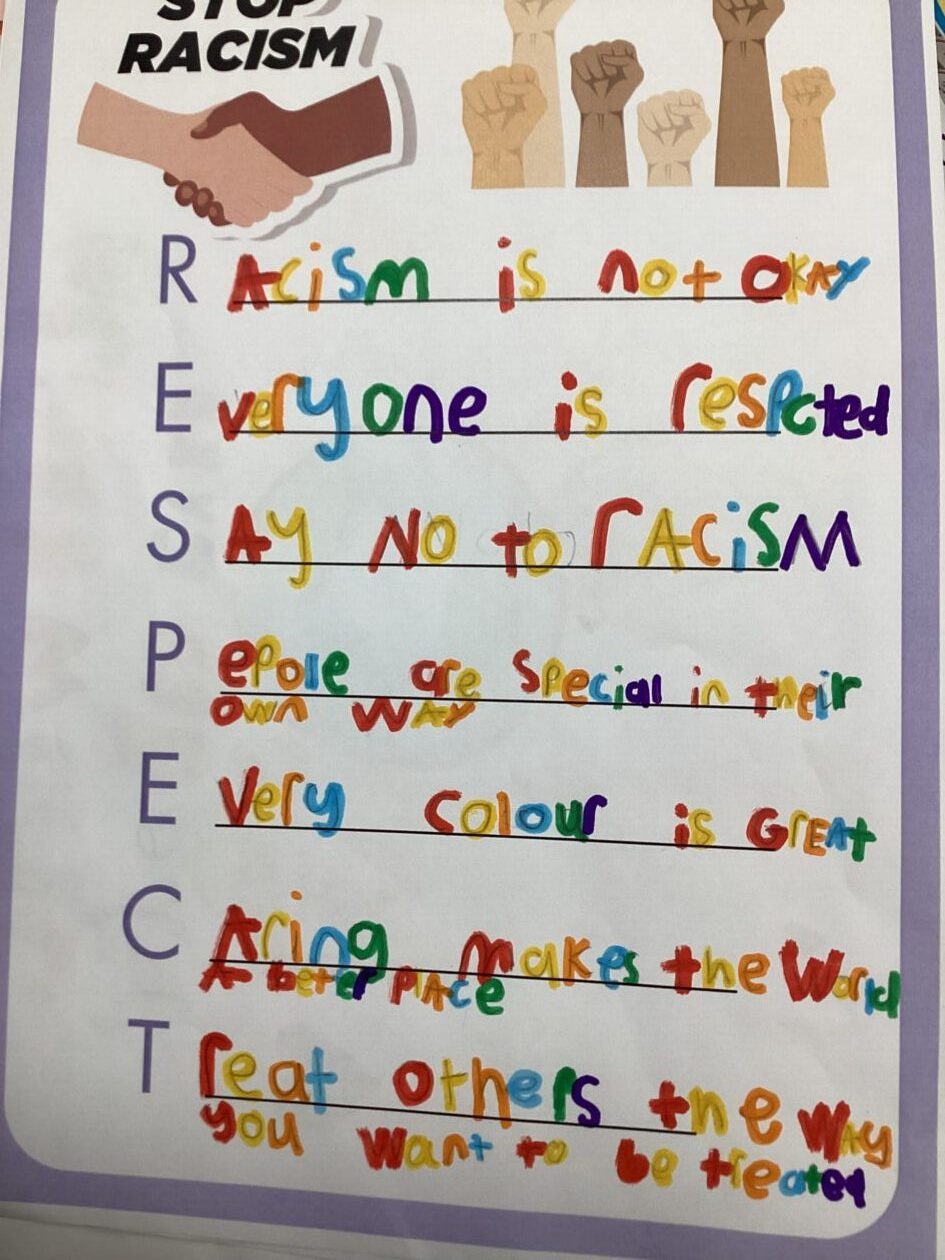 STOP
RACISM
RAcism is not OKAY
Everyone is respcted
SAY NO to rACiSM
Pepole are special in their
own WAY
EVery colour is GrEAt
CAring makes the World
A beter PlAce
Treat others the WAy
you Want to be treated